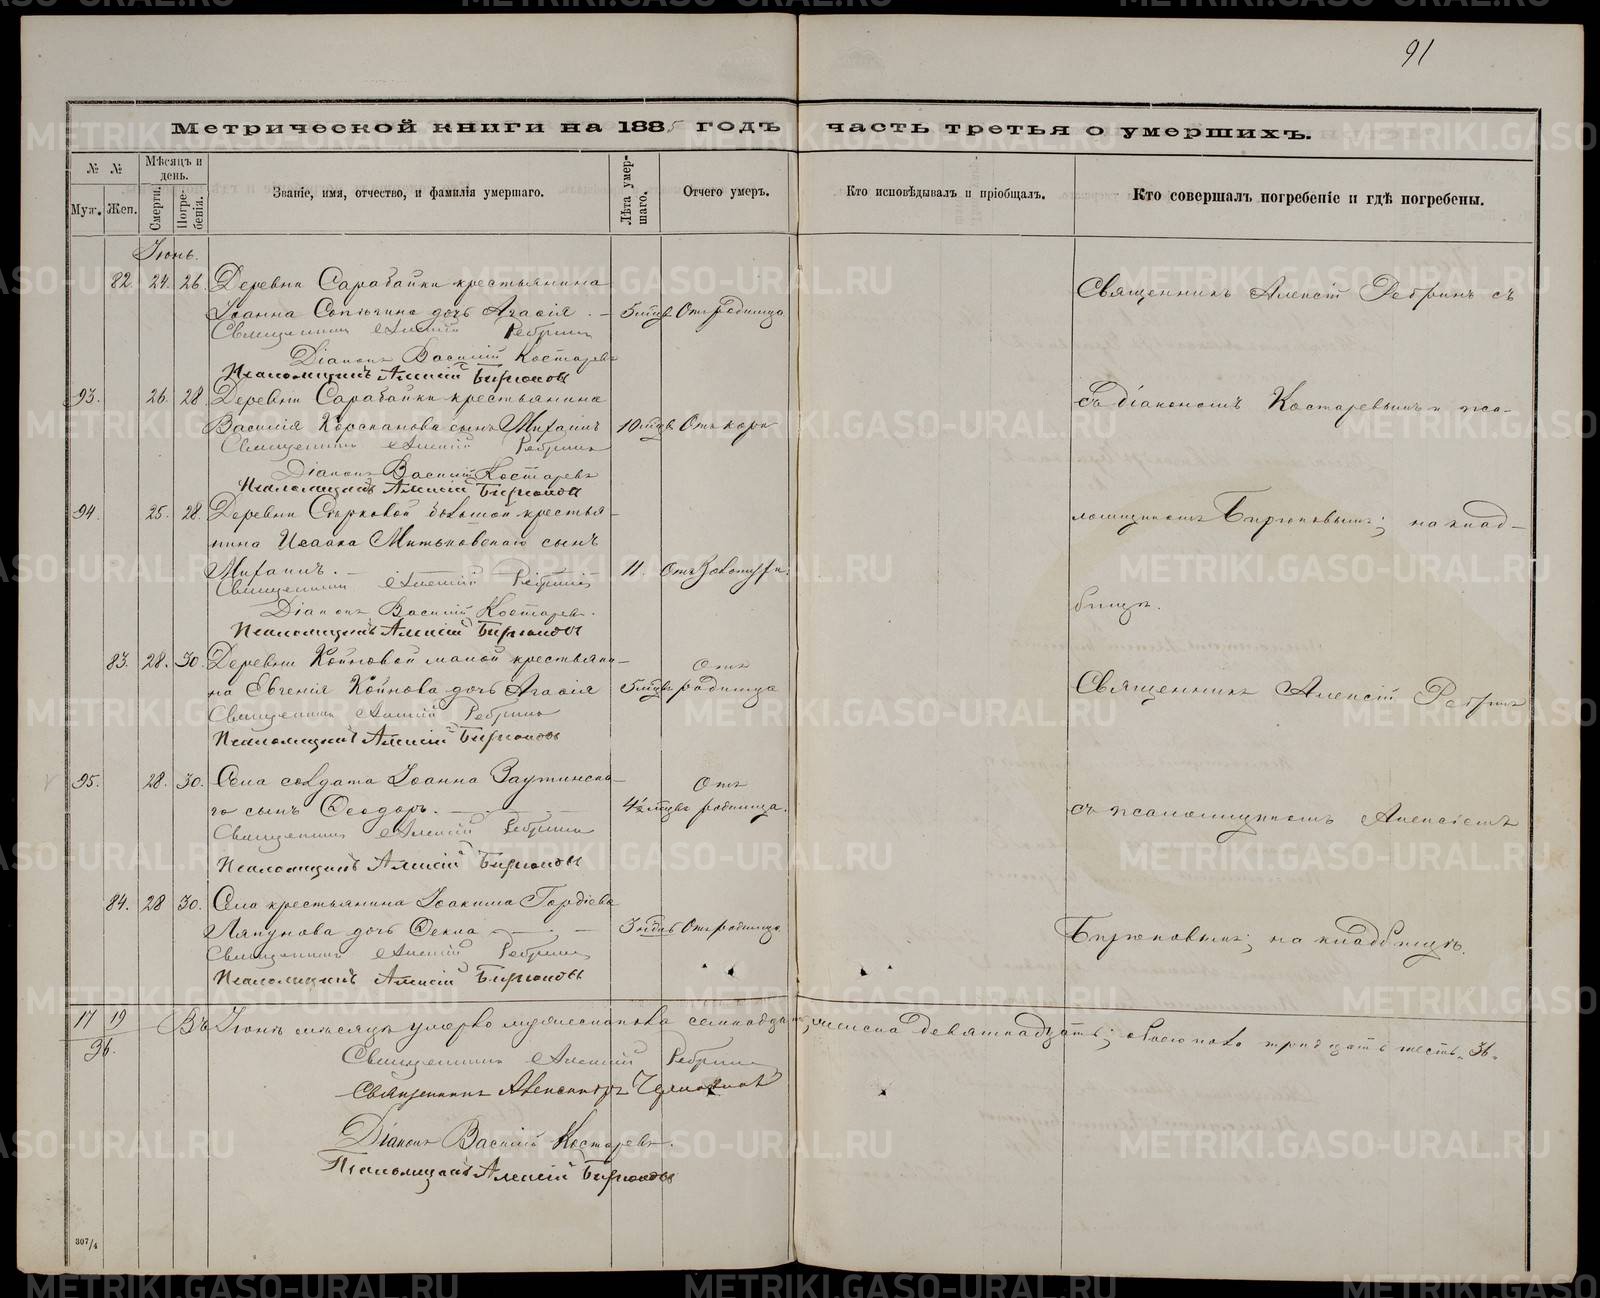 91
Метрической книги на 1885 годъ часть третья о умершихъ.
№ №
Мѣсяцъ и день.
Муж. Жен.
Смерти.
Погребенія.
Званіе, имя, отчество, и фамилія умершаго.
Лѣта умершаго.
Отчего умеръ.
Кто исповѣдывалъ и пріобщалъ.
Кто совершалъ погребеніе и гдѣ погребены.
Іюнь.
82. 24. 26. Деревни Сарабайки крестьянина
Іоанна дочь Агаѳія. 5 мцвъ Отъ родимца
Священникъ Алексій Ребринъ
Діаконъ Василій Костаревъ
Псаломщикъ Алексій Бирюковъ
Священникъ Алексій Ребринъ съ
93. 26. 28. Деревни Сарабайки крестьянина
Василія сынъ Михаилъ 10 мцвъ Отъ кори
Священникъ Алексій Ребринъ
Діаконъ Василій Костаревъ
Псаломщикъ Алексій Бирюковъ
діакономъ Костаревымъ и пса-
94. 25. 28. Деревни большой крестья-
нина Исаака сынъ
Михаилъ. 11. Отъ
Священникъ Алексій Ребринъ
Діаконъ Василій Костаревъ.
Псаломщикъ Алексій Бирюковъ
ломщикомъ Бирюковымъ; на клад-
бищѣ.
83. 28. 30. Деревни Койновой малой крестьяни-
на Евгенія Койнова дочь Агаѳія 5 мцвъ Отъ родимца
Священникъ Алексій Ребринъ
Псаломщикъ Алексій Бирюковъ
Священникъ Алексій Ребринъ
95. 28. 30. Села солдата Іоанна
го сынъ Ѳеодоръ. 4½ мцвъ Отъ родимца.
Священникъ Алексій Ребринъ
Псаломщикъ Алексій Бирюковъ
съ псаломщикомъ Алексіемъ
84. 28 30. Села крестьянина Іоакима Гордіева
Ляпунова дочь Ѳекла 3 Отъ родимца
Священникъ Алексій Ребринъ
Псаломщикъ Алексій Бирюковъ
Бирюковымъ; на кладбищѣ.
17 19
36.
Въ Іюнѣ мѣсяцѣ умерло мужескаго пола семнадцать, женска девятнадцать; обоего пола тридцать шесть. 36.
Священникъ Алексій Ребринъ
Священникъ Александръ
Діаконъ Василій Костаревъ.
Псаломщикъ Алексій Бирюковъ
307/4
METRIKI.GASO-URAL.RU